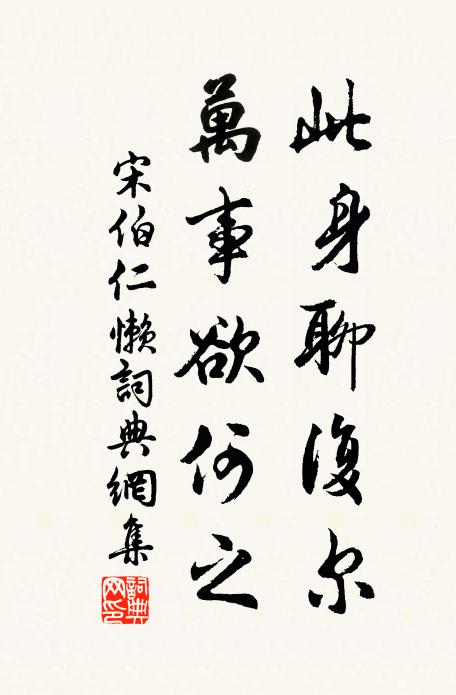 此身聊復尔
萬事欲何之
宋伯仁懒詞典網集
詞典網印